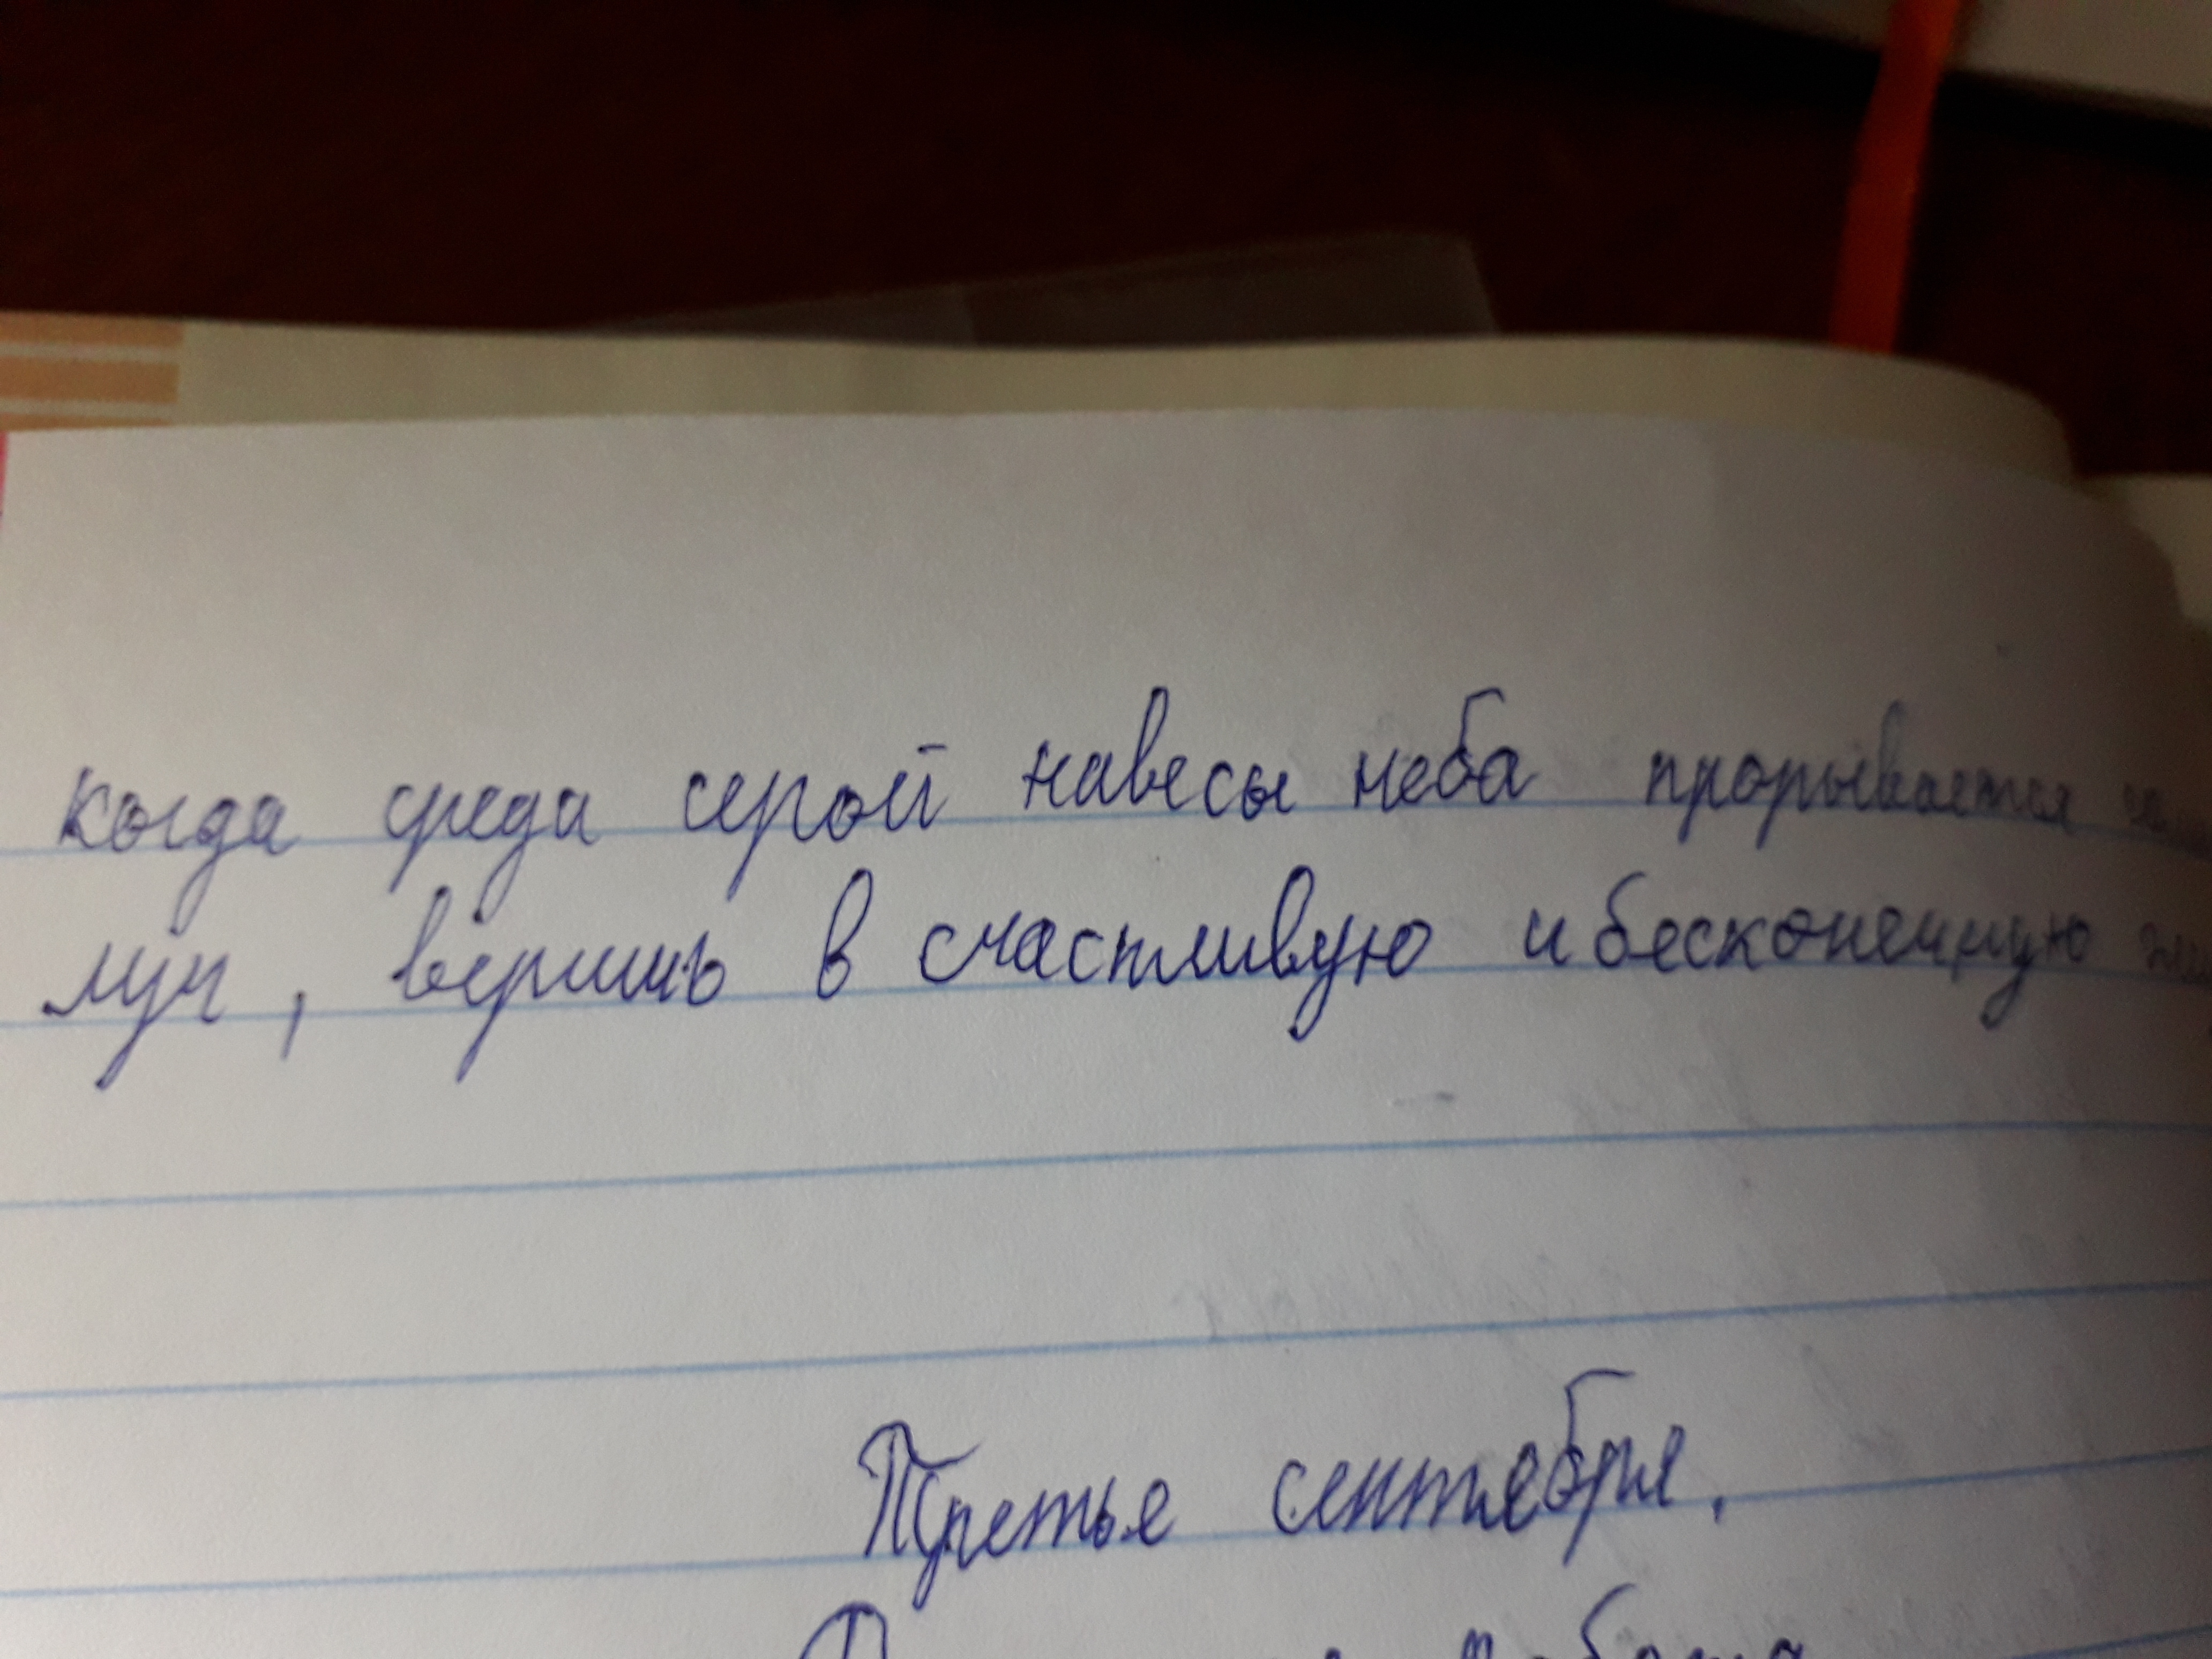 когда среда серой навесы неба прорывается
луч, веришь в счастливую и бесконечную
Третье сентября.